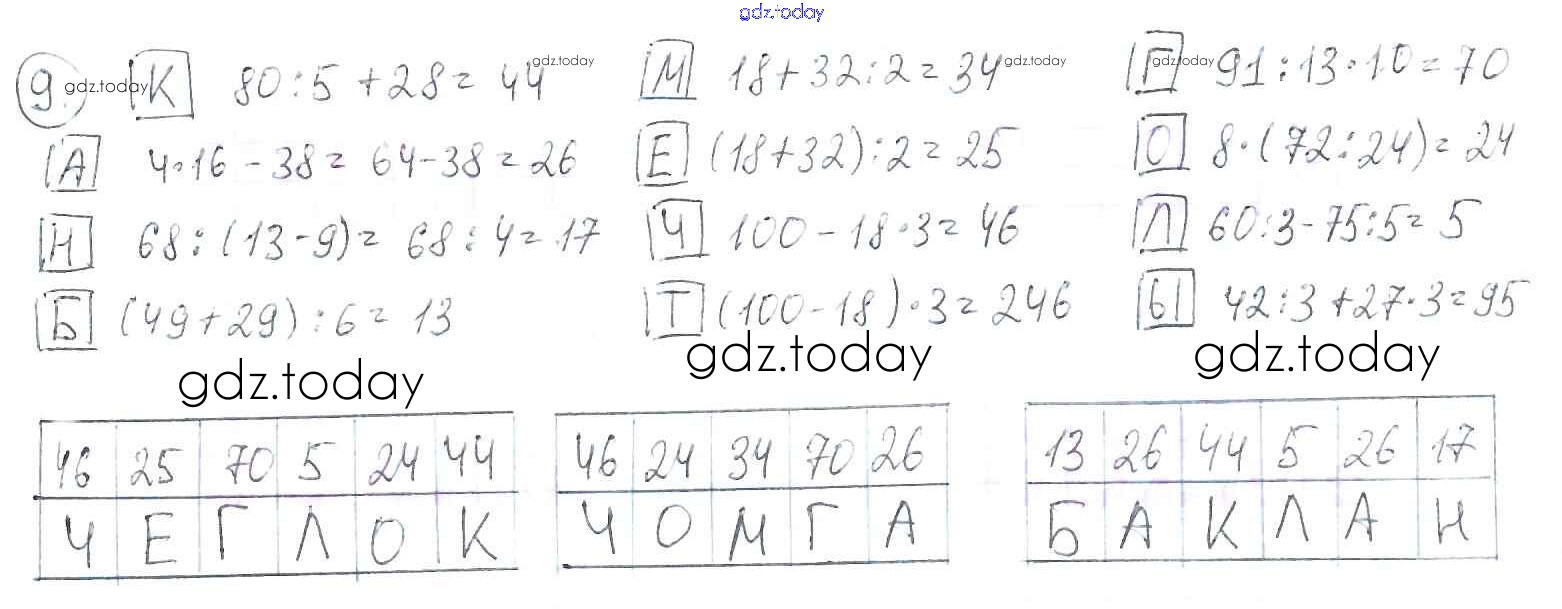 gdz.today
9. gdz.today К 80:5+28=44 gdz.today М 18+32:2=34 gdz.today Г gdz.today 91:13·10=70
А 4·16-38=64-38=26 Е (18+32):2=25 О 8·(72:24)=24
Н 68:(13-9)=68:4=17 Ч 100-18·3=46 Л 60:3-75:5=5
Б (49+29):6=13 Т (100-18)·3=246 Ы 42:3+27·3=95
gdz.today gdz.today gdz.today
46 25 70 5 24 44 46 24 34 70 26 13 26 44 5 26 17
Ч Е Г Л О К Ч О М Г А Б А К Л А Н